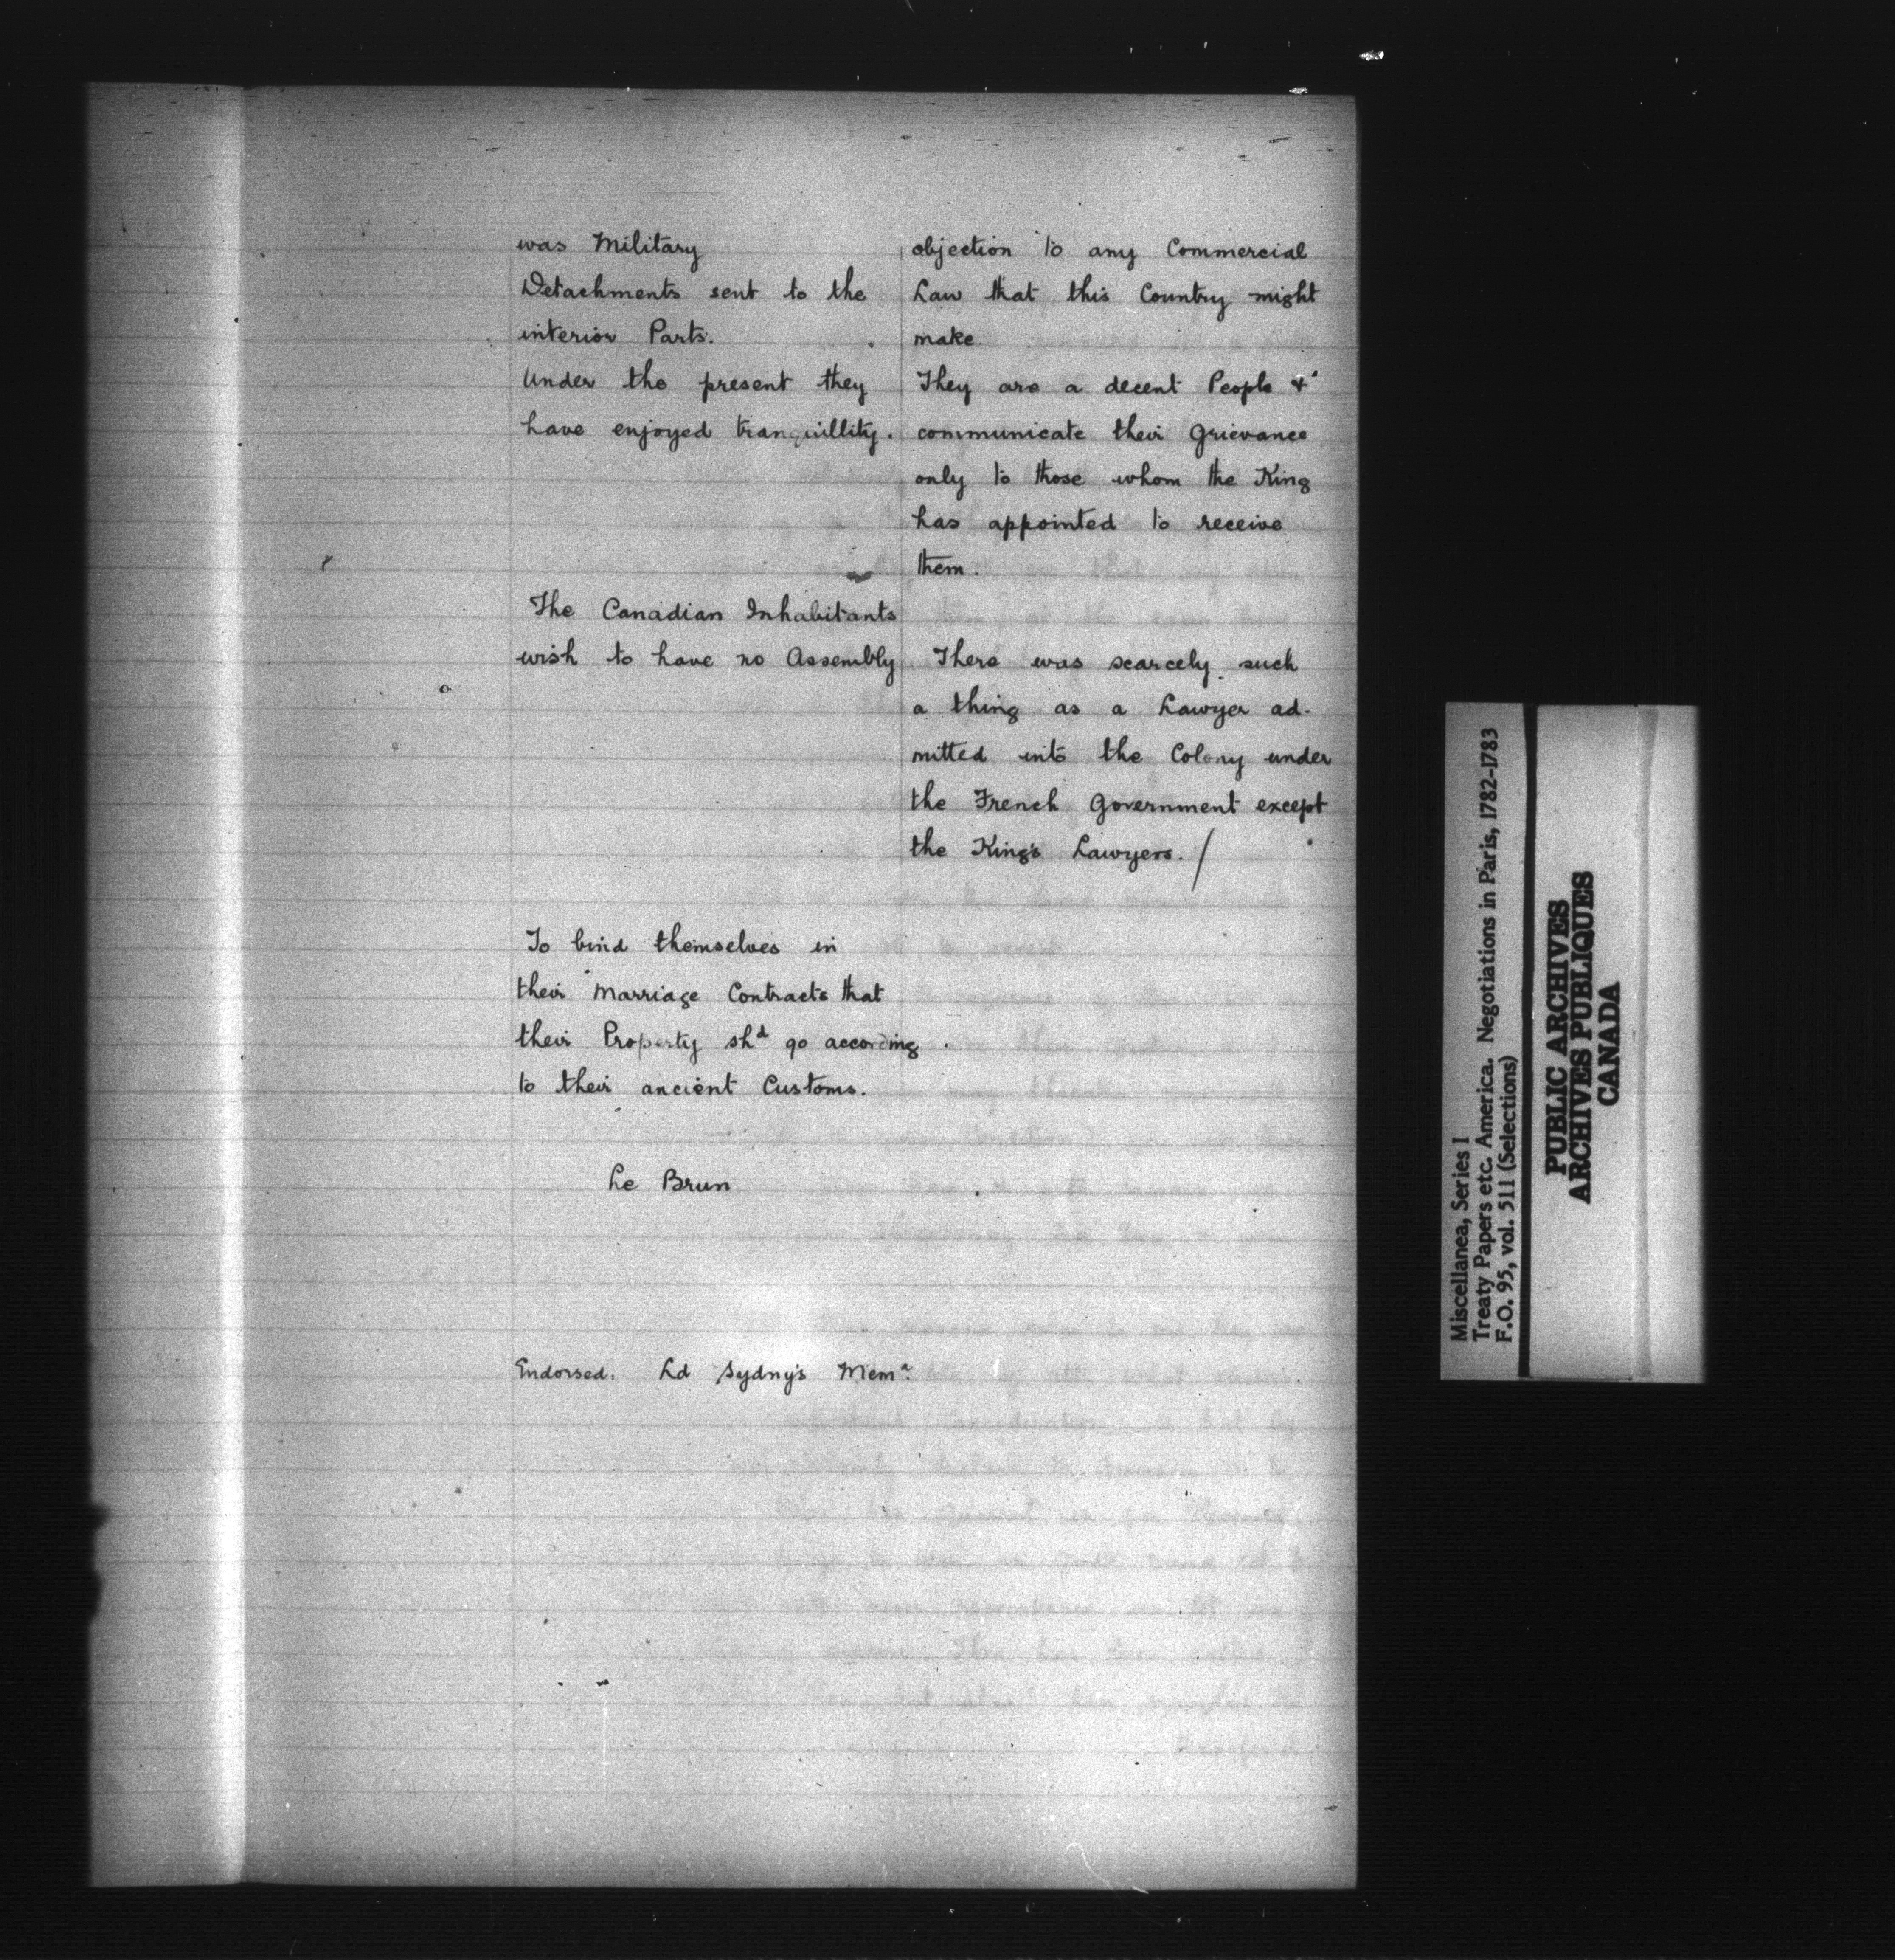 was Military
Detachments sent to the
interior Parts.
Under the present they
have enjoyed tranquillity.
The Canadian Inhabitants
wish to have no Assembly
To bind themselves in
their Marriage Contracts that
their Property shd go according
to their ancient Customs.
Le Brun
objection to any Commercial
Law that this Country might
make
They are a decent People &
communicate their Grievance
only to those whom the King
has appointed to receive
them.
There was scarcely such
a thing as a Lawyer ad-
mitted into the Colony under
the French Government except
the King's Lawyers. /
Endorsed. Ld Sydny's Mema.
Miscellanea, Series I
Treaty Papers etc. America. Negotiations in Paris, 1782-1783
F.O. 95, vol. 511 (Selections)
PUBLIC ARCHIVES
ARCHIVES PUBLIQUES
CANADA